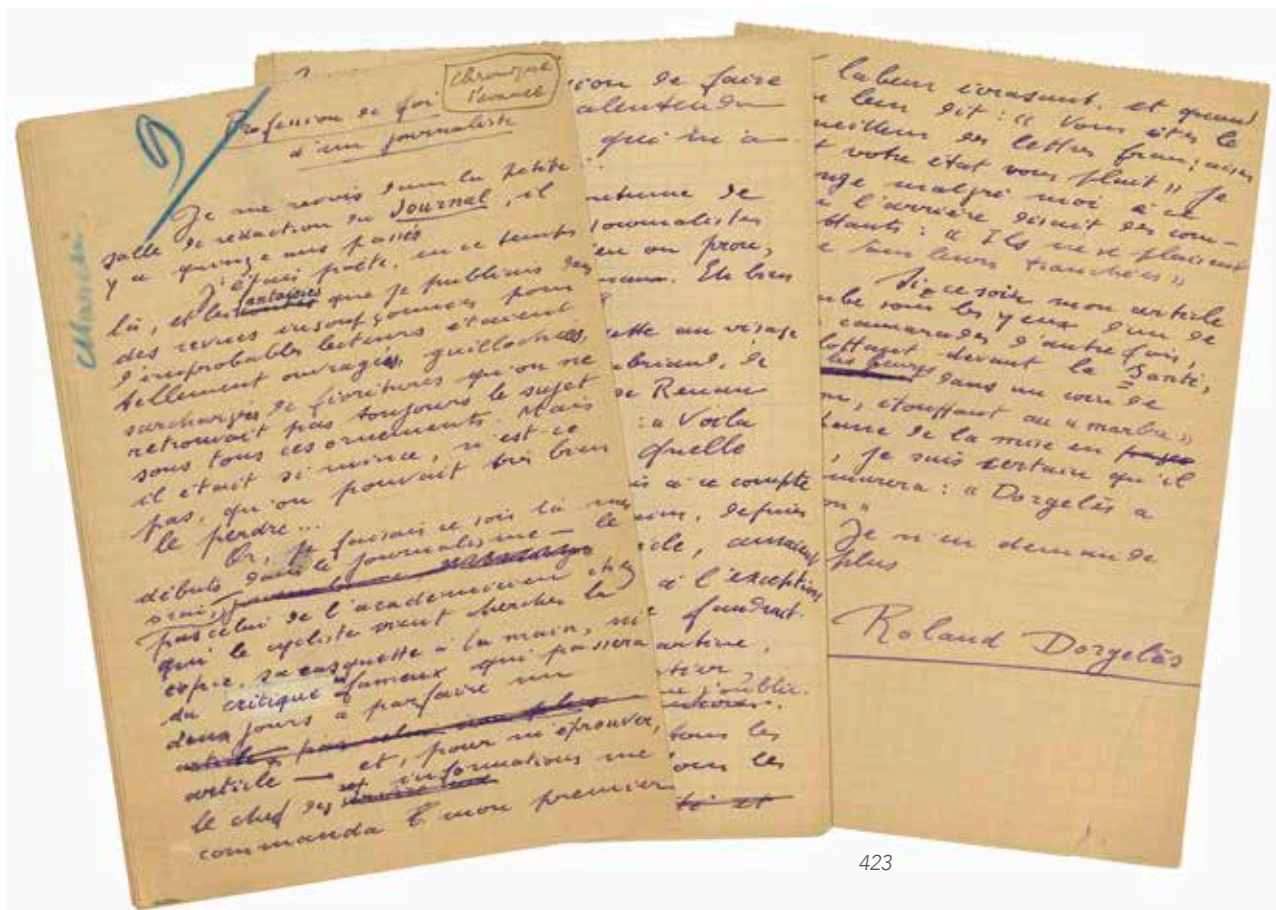 9
Mardi
chronique
Profession de foi
d'un journaliste
Je me revois dans la petite
salle de rédaction du Journal, il
y a quinze ans passés
J'étais poète, en ce temps
là, et les fantaisies que je publiais dans
des revues insoupçonnées pour
d'improbables lecteurs étaient
tellement ouvragées, guillochées,
surchargées de fioritures qu'on ne
retrouvait pas toujours le sujet
sous tous ces ornements. Mais
il était si mince, n'est-ce
pas, qu'on pouvait très bien
le perdre...
Or, je faisais ce soir là mes
débuts dans le journalisme — le
vrai,
pas celui de l'académicien chez
qui le cycliste vient chercher la
copie, sa casquette à la main, ni
du critique fameux qui passera
deux jours à parfaire un
article — et, pour m'éprouver,
le chef des informations me
commanda mon premier
sion de faire
alentendu
qui m'a
outume de
journalistes
eu ou prou,
Eh bien
ette au visage
ubriand, de
de Renan
: « Voilà
quelle
is à ce compte
depuis
cle,
à l'exception
faudrait-
j'oublie.
tous les
ous les
labeur écrasant, et quand
leur dit : « Vous êtes le
meilleur des lettres françaises
t votre état vous plaît » je
nge malgré moi à ce
e l'arrière disait des com-
battants : « Ils ne se plaisent
e dans leurs tranchées »
Si, ce soir, mon article
mbe sous les yeux d'un de
camarades d'autrefois,
devant la Santé,
dans un coin de
, étouffant au « marbre »
de la mise en pages
, je suis certain qu'il
murmurera : « Dorgelès a
on »
Je n'en demande
plus
Roland Dorgelès
423